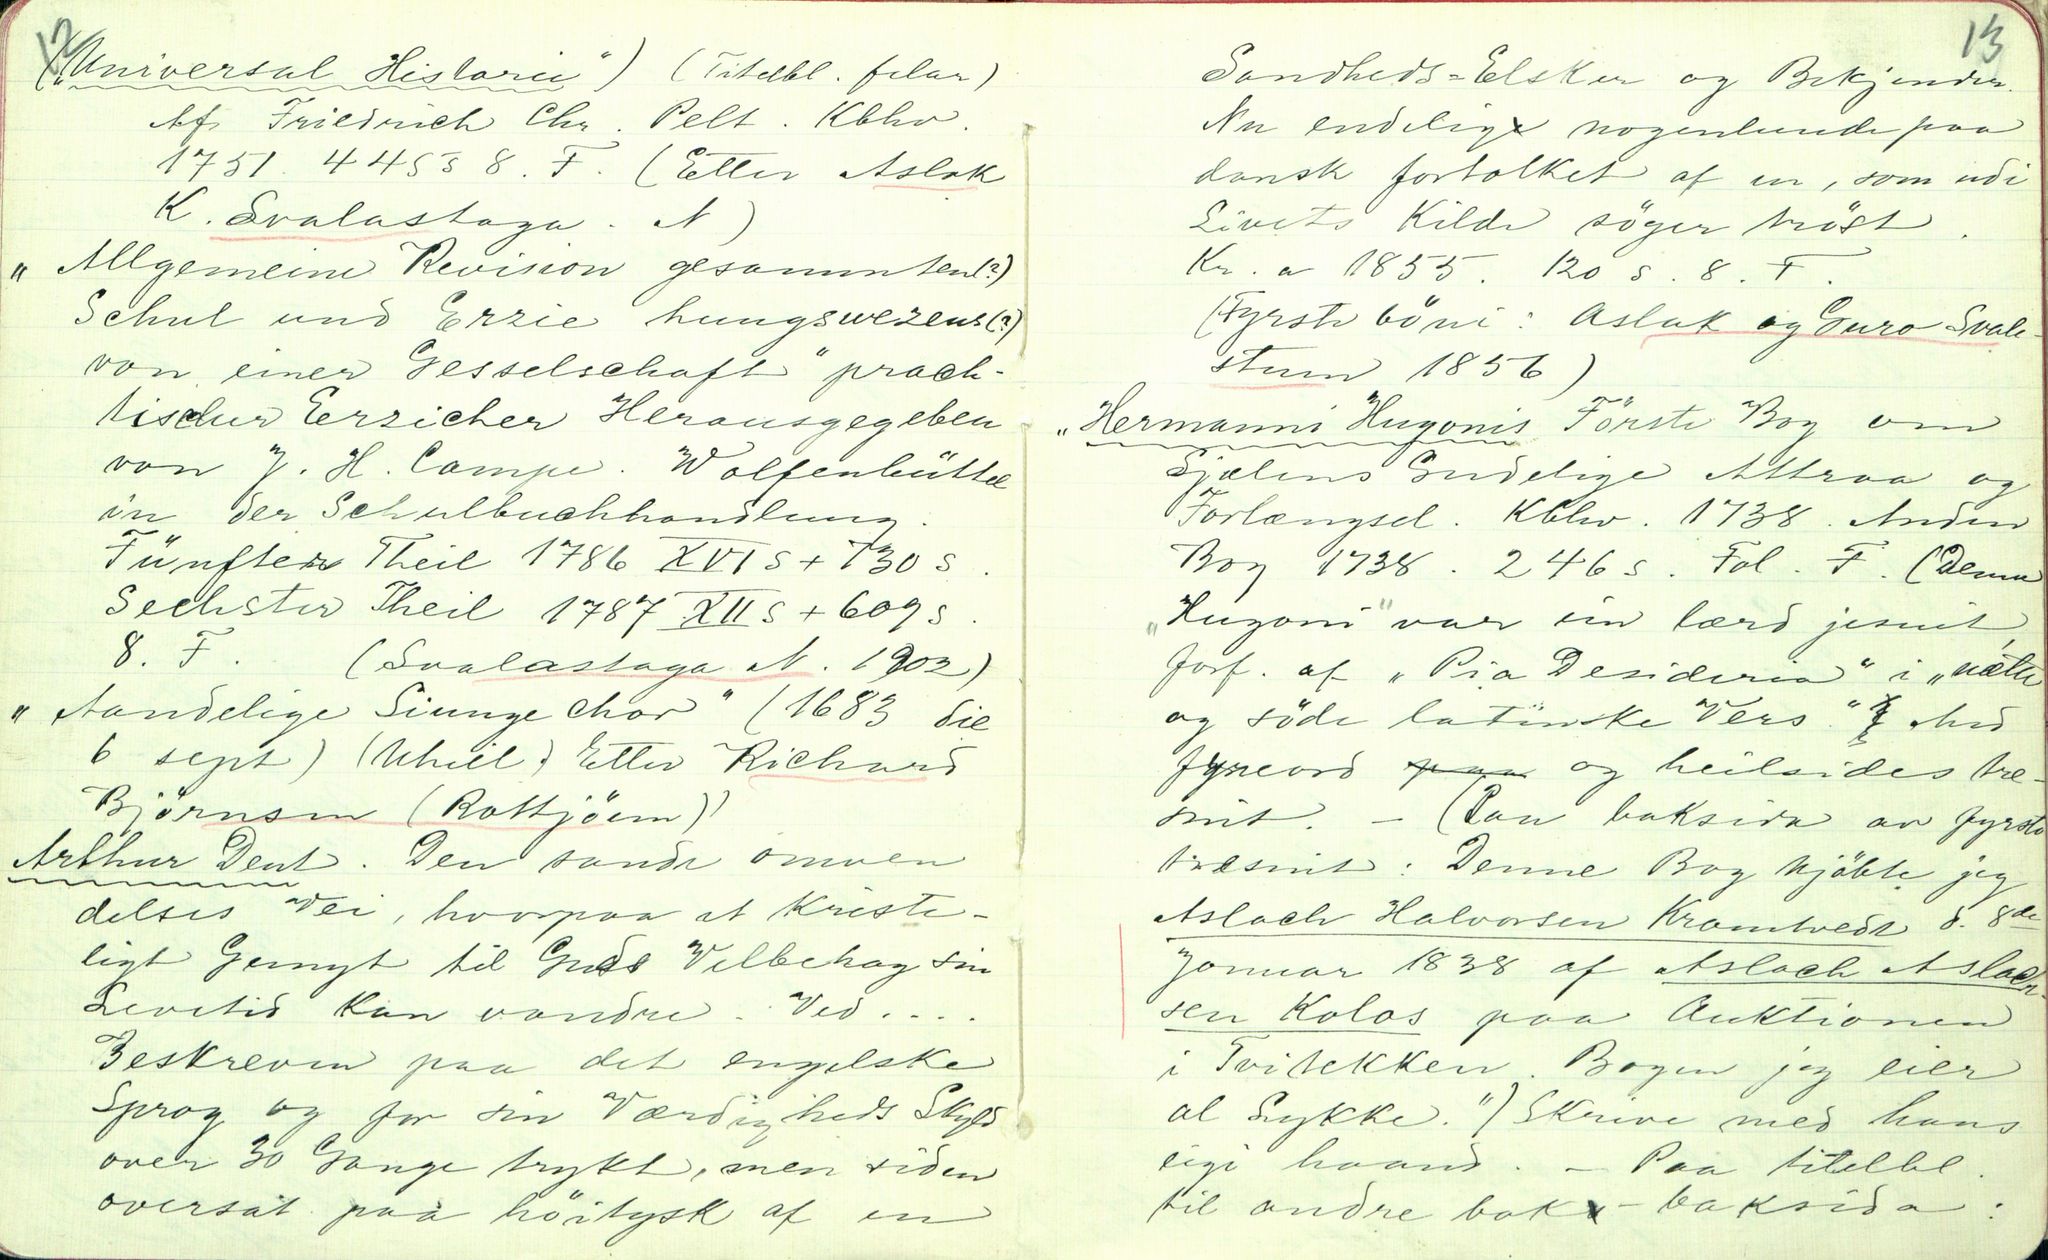 12
("Universal Historie") (Titelbl. felar)
Af Friedrich Chr. Pelt. Kbhv.
1751. 445 s 8. F. (Etter Aslak
K. Svalastoga. N)
" Allgemeine Revision gesammten(?)
Schul und Erzie hungswezens(?)
von einer Gesselschaft" prach-
tischer Erzieher Herausgegeben
von J. H. Campe. Wolfenbüttel
in der Schulbuchhandlung.
Fünfter Theil 1786 XVI s + 730 s.
Sechster Theil 1787 XII s + 609 s.
8. F. (Svalastoga N. 1902)
" Aandelige Siunge Chor" (1683 die
6 sept) (Uheil.) Etter Richard
Björnsen (Rottjöem)
Arthur Dent. Den sande omven
delses Vei, hvorpaa et Kriste-
ligt Gemyt til Guds Velbehag sin
Levetid kan vandre. Ved....
Beskreven paa det engelske
Sprog og for sin Værdigheds Skyld
over 30 Gange trykt, men siden
oversat paa höitysk af en
13
Sandheds=Elsker og Bekjender.
Nu endelig nogenlunde paa
dansk fortolket af en, som udi
Livets Kilde söger tröst.
Kr.a 1855. 120 s. 8. F.
(Fyrste böni: Aslak og Guro Svale-
stuen 1856)
"Hermanni Hugonis Förste Bog om
Sjælens Gudelige Attraa og
Forlængsel. Kbhv. 1738. Anden
Bog 1738. 246 s. Fol. F. (Denne
"Hugoni" var ein lærd jesuit,
forf. af "Pia Desideria" i "nætte
og söde latinske Vers." Med
fyreord paa og heilsides tre-
snit. - (Paa baksida av fyrste
træsnit: Denne Bog kjöbte jeg
Aslach Halvorsen Kromtvedt d. 8de
Januar 1838 af Aslach Aslach-
sen Kolos paa Auktionen
i Tvitekken. Bogen jeg eier
al Lykke.") Skrive med hans
eigi haand. - Paa titelbl.
til andre bok - baksida: